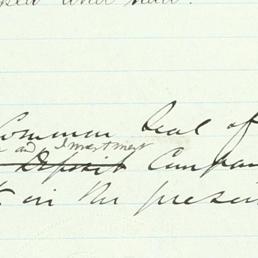 Common Seal of
and Investment
Deposit Compan
in the presen